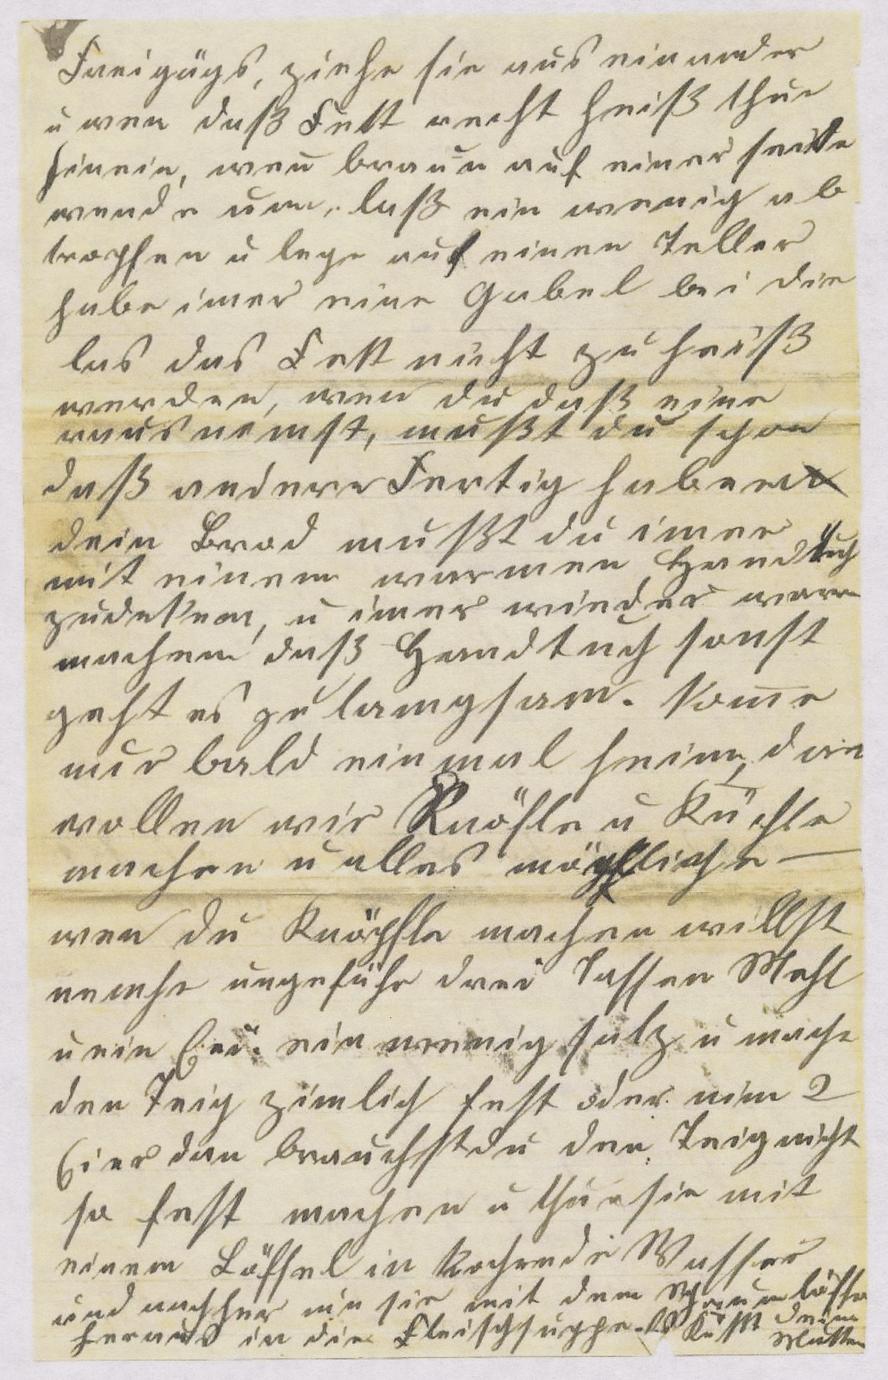 Freigügs, ziehe sie aus einander
u wen daß Fett recht heiß thue
hinein, wen braun auf einer seite
wende um. laß ein wenig ab
tropfen u lege auf einen Teller
habe imer eine Gabel bei dir
las das Fett nicht zu heiß
werden, wen du daß eine
rausnemst, mußt du schon
daß andere Fertig haben
dein Brod mußt du imer
mit einem warmen Handtuch
zudeken, u imer wieder warm
machen daß Handtuch sonst
geht es zu langsam. Kome
nur bald einmal heim, dan
wollen wir Knöfle u Küchle
machen u alles mögliche —
wen du Knöpfle machen willst
nemhe ungefähr drei Tassen Mehl
u ein Eei. ein wenig salz u mache
den Teig zimlich fest oder nim 2
Eier dan brauchst du den Teig nicht
so fest machen u thue sie mit
einem Löffel in Kochende Wasser
und nachher nim sie mit dem Schaumlöffel
heraus in die Fleischsuppe. Kußt deine
Mutter